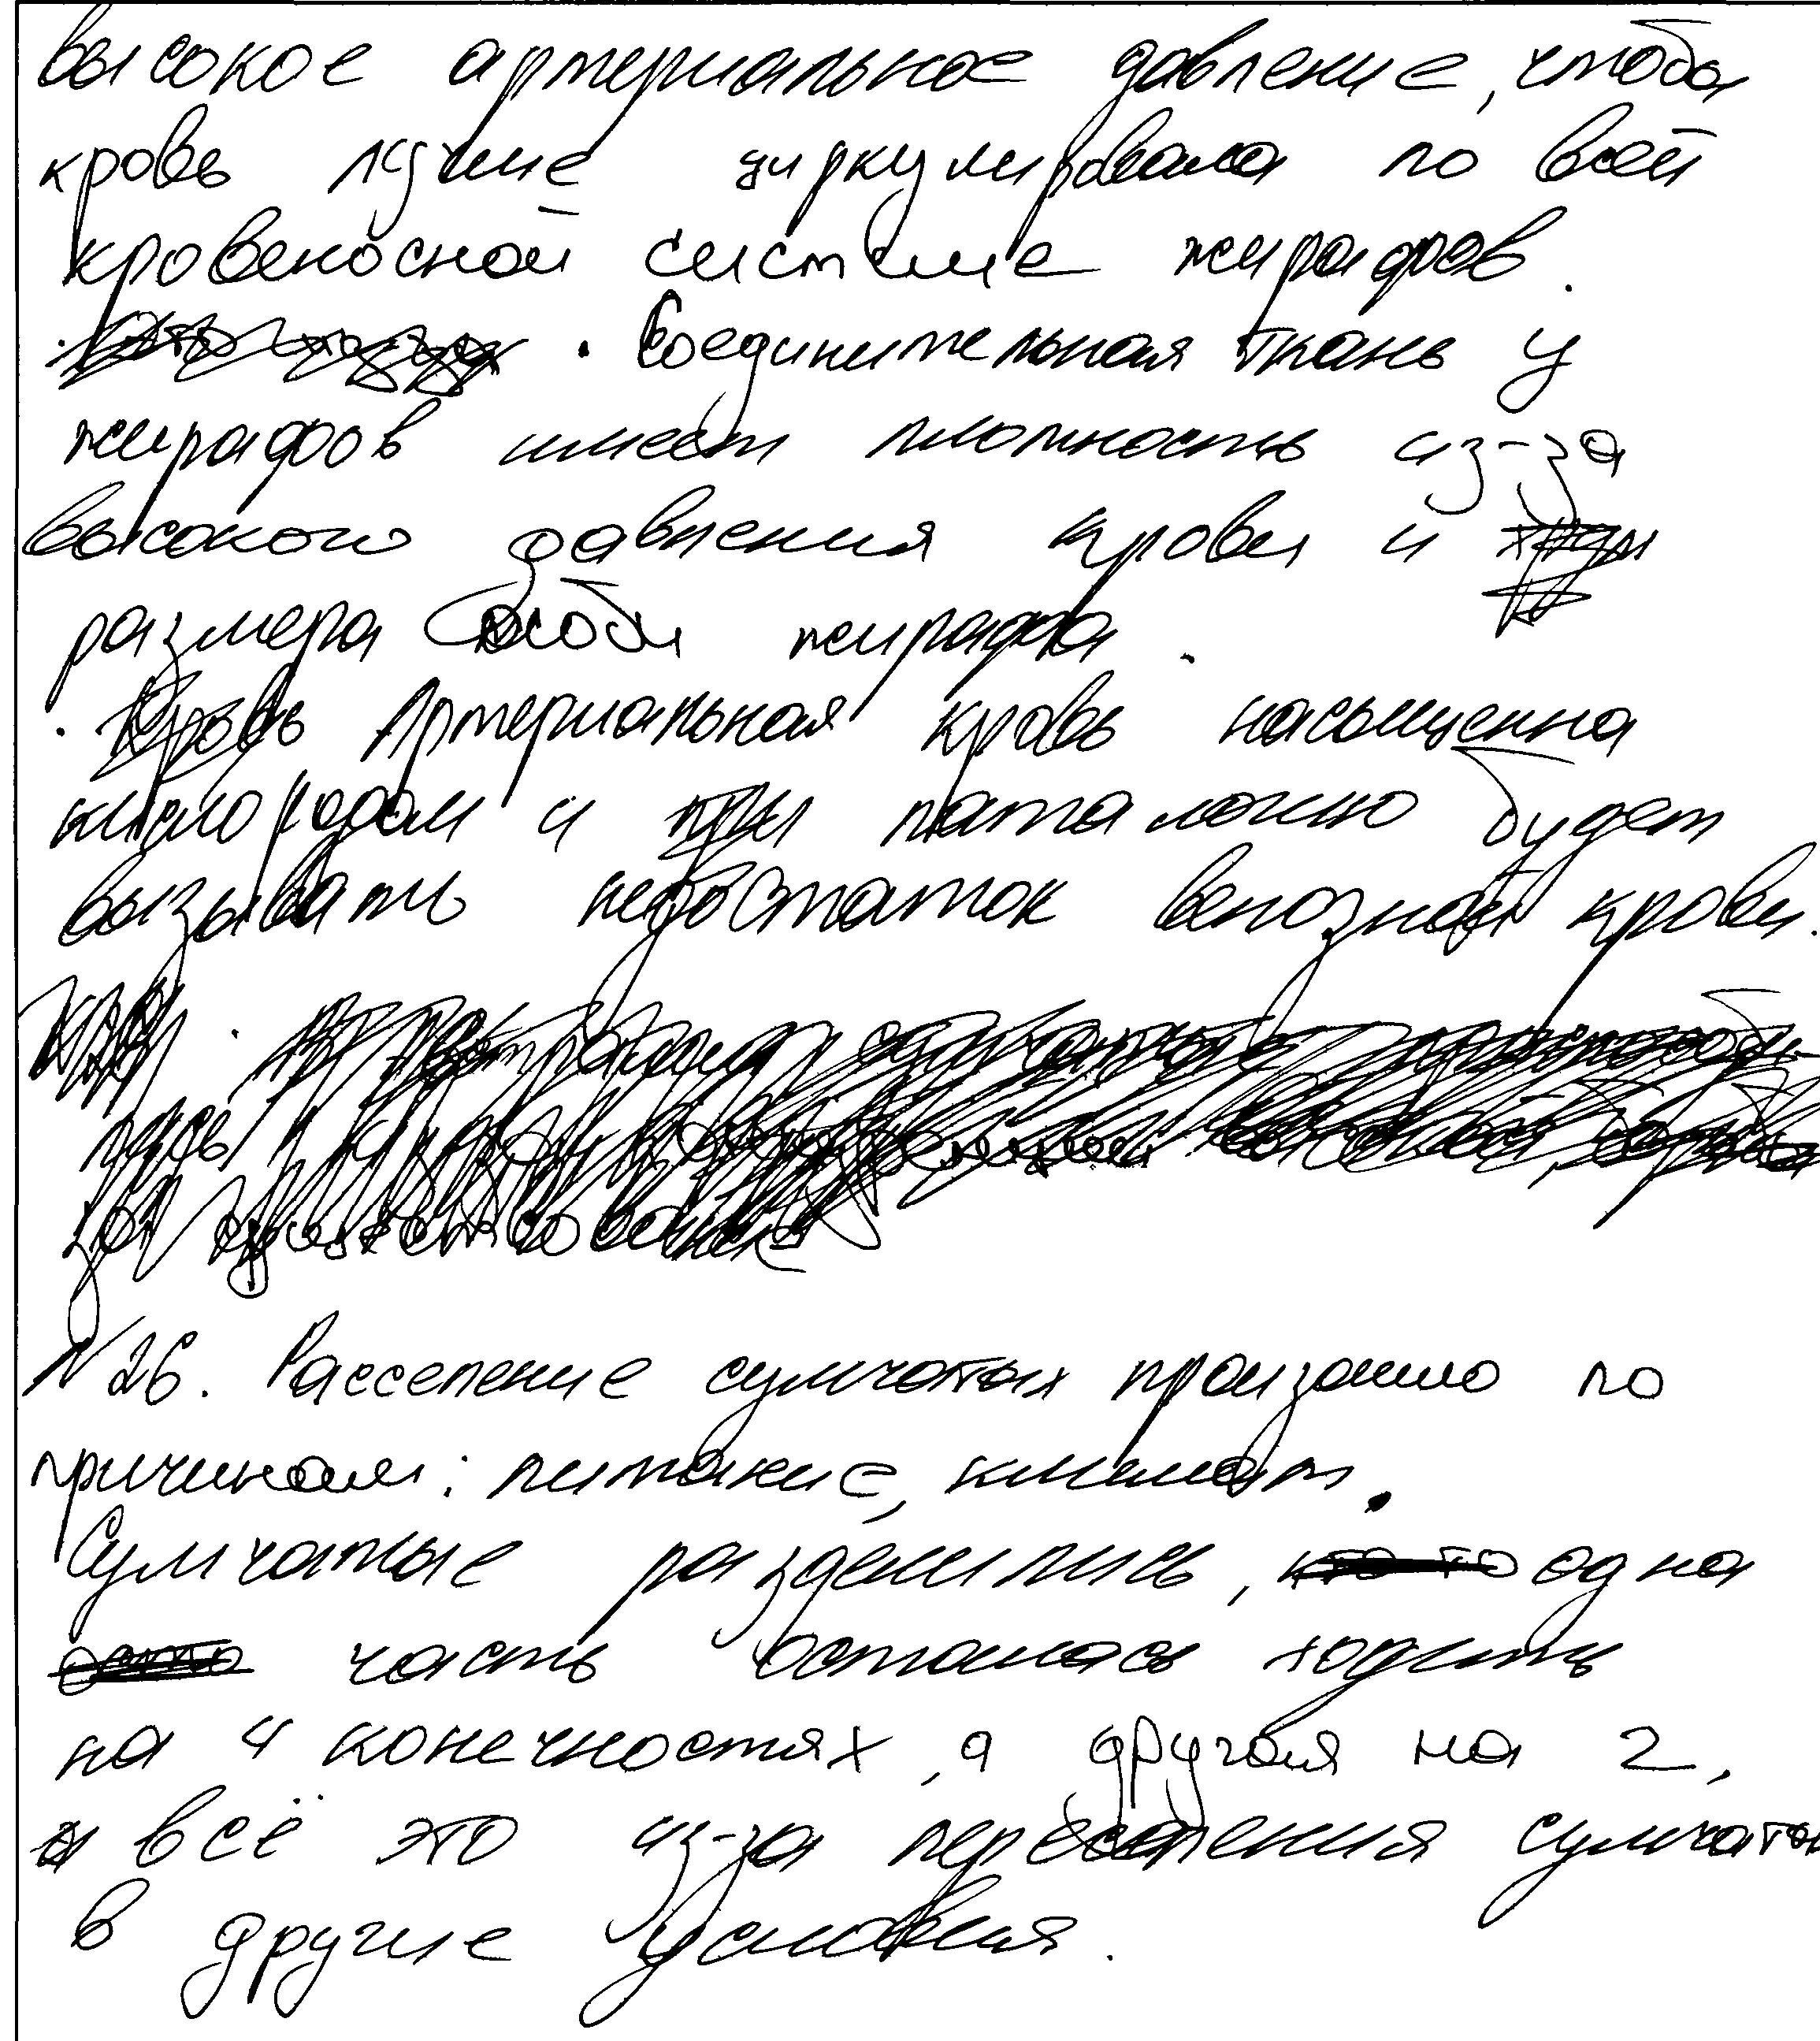 высокое артериальное давление, чтобы
кровь лучше циркулировала по всей
кровеносной системе жирафов.
· Соединительная ткань у
жирафов имеет плотность из-за
высокого давления крови и
размера особи жирафа.
· Артериальная кровь насыщенна
кислородом и патологию будет
вызывать недостаток венозной крови.
№26. Расселение сумчатых произошло по
причинам: питание, климат.
Сумчатые разделились, одна
часть осталась ходить
на 4 конечностях, а другая на 2,
всё это из-за переселения сумчатых
в другие условия.